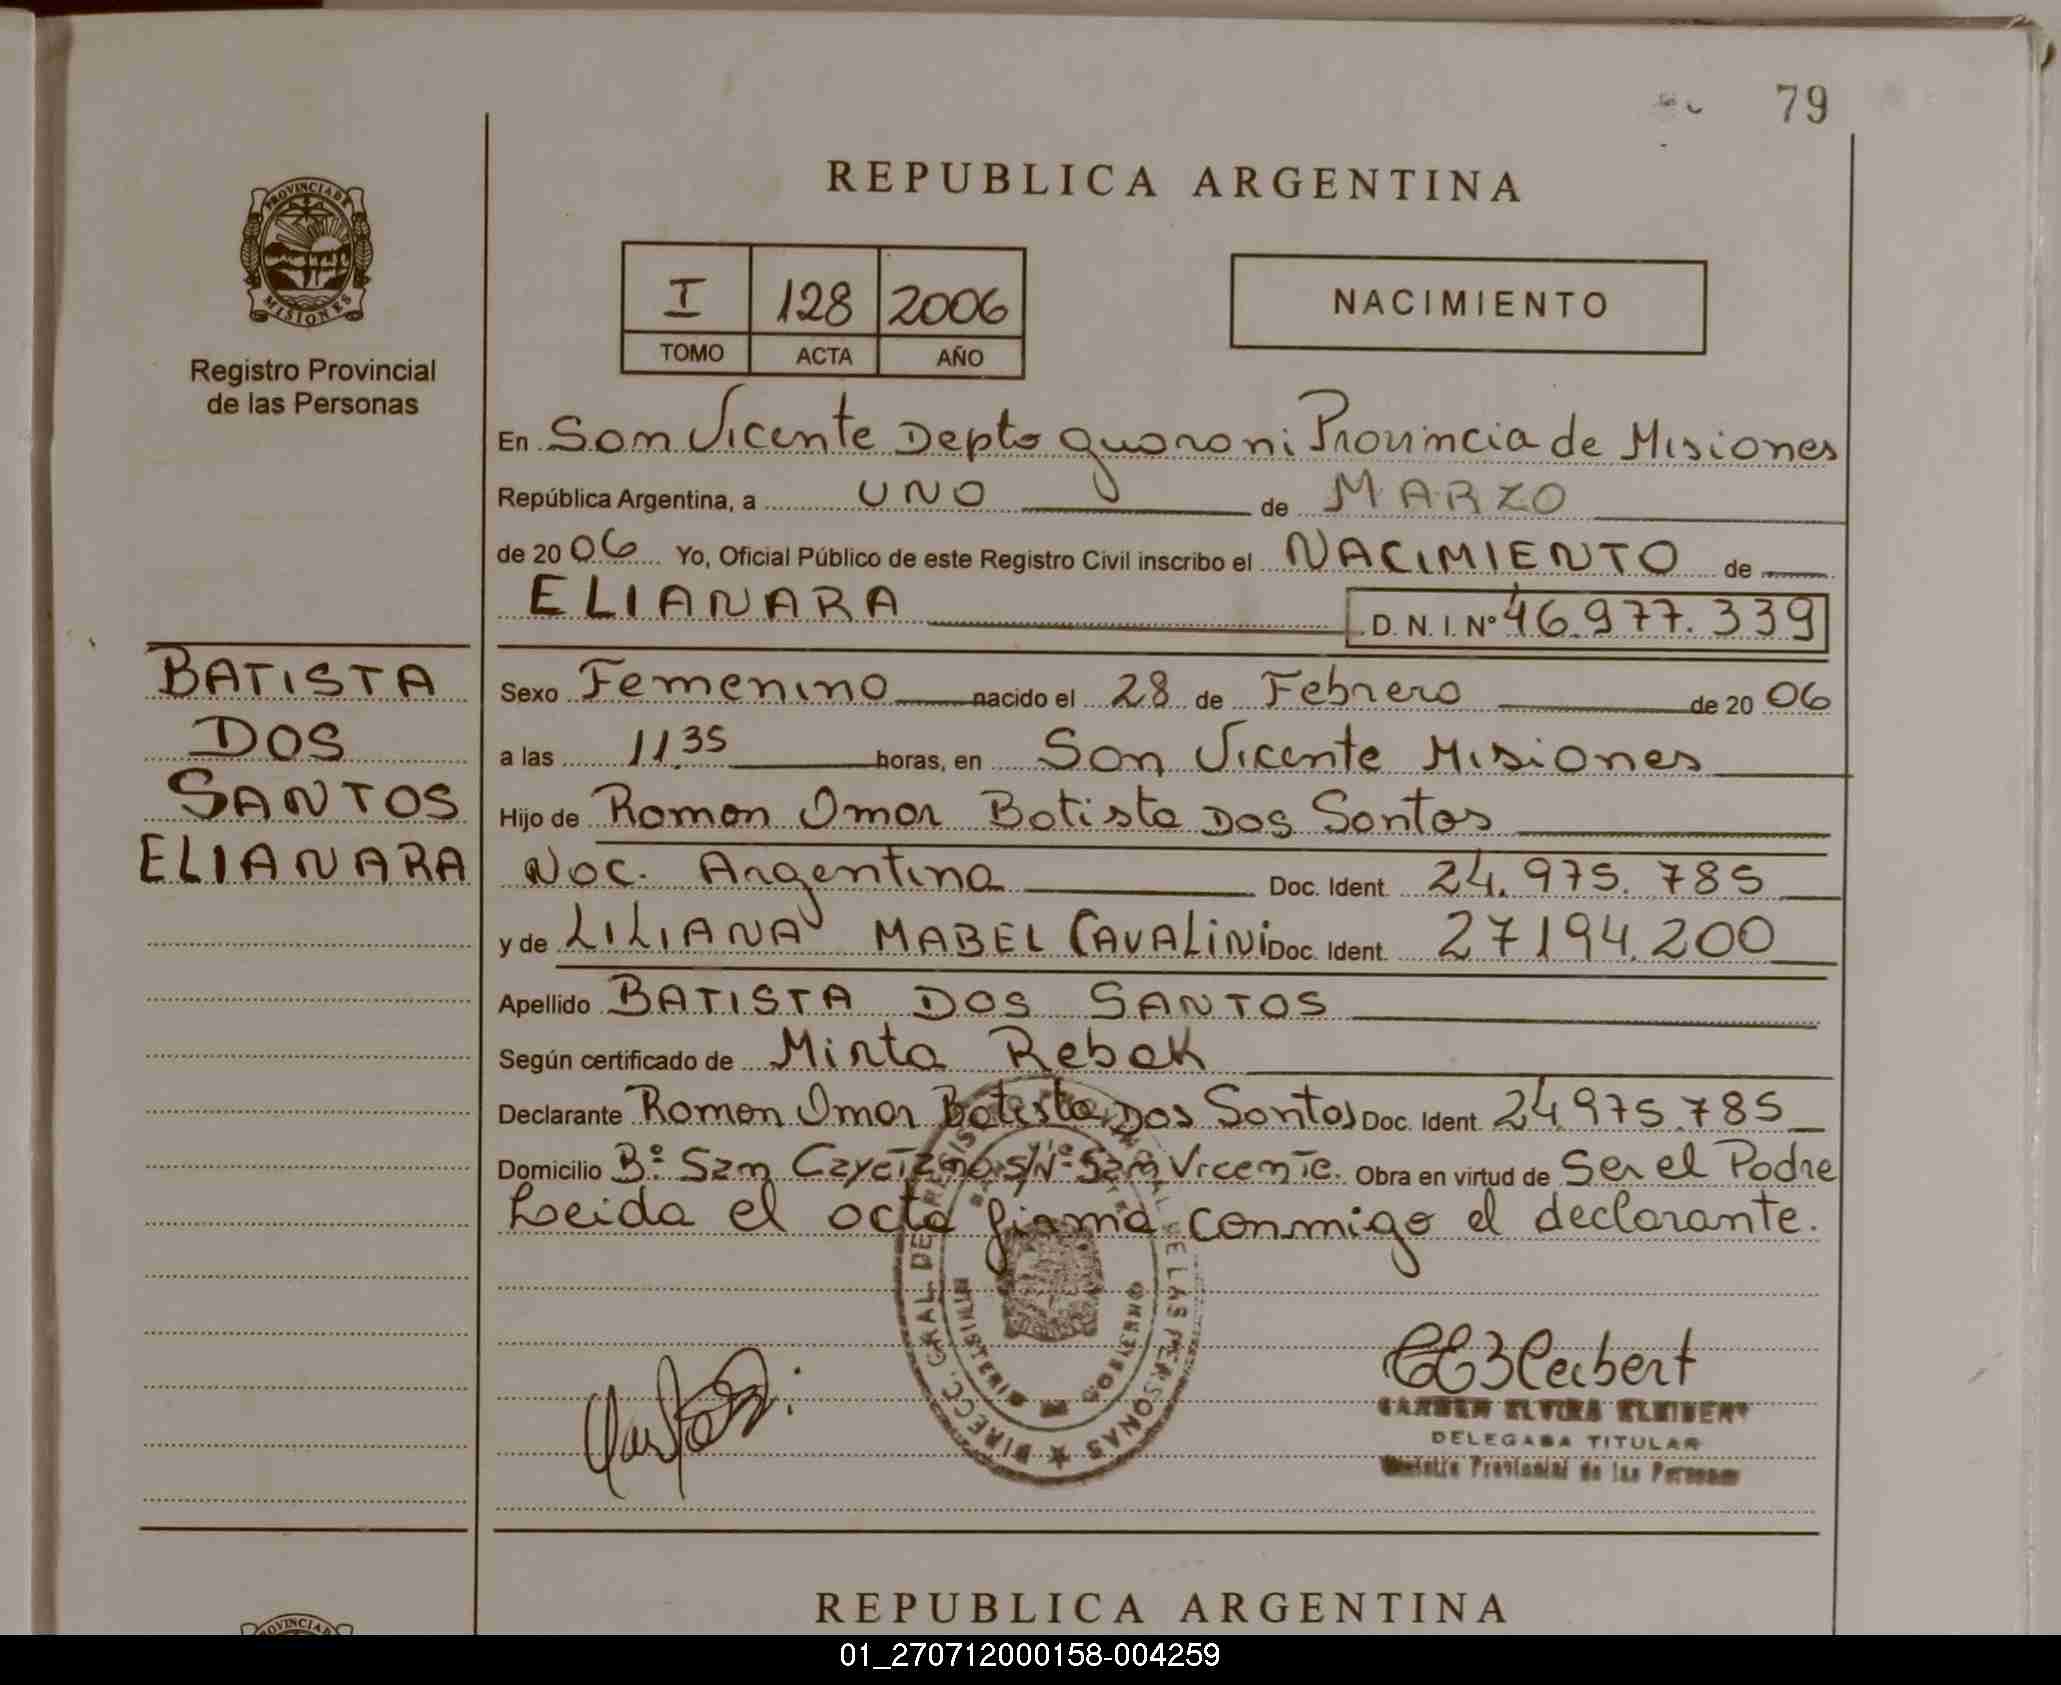 79
REPUBLICA ARGENTINA
PROVINCIA DE MISIONES
Registro Provincial
de las Personas
I 128 2006
TOMO ACTA AÑO
NACIMIENTO
En San Vicente Depto Guarani Provincia de Misiones
República Argentina, a UNO de MARZO
de 20 06 Yo, Oficial Público de este Registro Civil inscribo el NACIMIENTO de
ELIANARA D. N. I. Nº 46.977.339
BATISTA
DOS
SANTOS
ELIANARA
Sexo Femenino nacido el 28 de Febrero de 20 06
a las 11.35 horas, en San Vicente Misiones
Hijo de Ramon Omar Batista Dos Santos
Nac. Argentina Doc. Ident. 24.975.785
y de LILIANA MABEL CAVALiNi Doc. Ident. 27194.200
Apellido BATISTA DOS SANTOS
Según certificado de Mirta Rebak
Declarante Ramon Omar Batista Dos Santos Doc. Ident. 24.975.785
Domicilio Bº: San Cayetano S/Nº San Vicente. Obra en virtud de Ser el Padre
Leida el acta firma conmigo el declarante.
DIRECC. GRAL. DE REGISTRO DE LAS PERSONAS
MINISTERIO DE GOBIERNO
CARMEN ELVIRA KLEIBERT
DELEGADA TITULAR
Registro Provincial de las Personas
REPUBLICA ARGENTINA
PROVINCIA
01_270712000158-004259